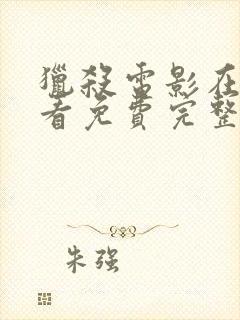 獵殺雷影在
看免費完整
朱强